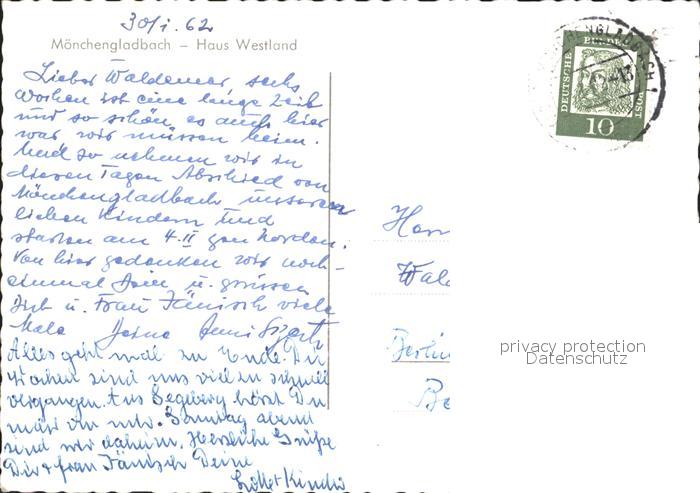 30/I. 62
Mönchengladbach – Haus Westland
Lieber Waldemar, sechs
Wochen ist eine lange Zeit
und so schön es auch hier
war wir müssen heim.
Und so nehmen wir in
diesen Tagen Abschied von
Mönchengladbach unseren
lieben Kindern und
starten am 4.II gen Norden.
Von hier gedenken wir noch-
einmal Dein u. grüssen
Dich u. Frau Jänisch viele
Male Deine
Alles geht mal zu Ende. Die
Wochen sind uns viel zu schnell
vergangen. Aus Segeberg hörst Du
mehr von mir. Sonntag abend
sind wir daheim. Herzliche Grüße
Dir + Frau Jänisch Deine
DEUTSCHE
BUNDES
POST
10
Herr
Wald
Berlin
Be
privacy protection
Datenschutz